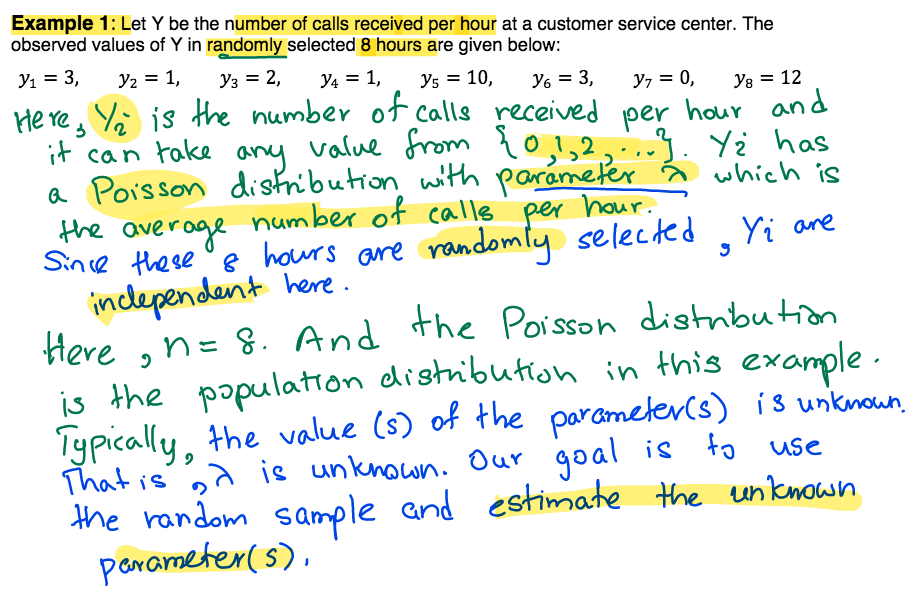 Example 1: Let Y be the number of calls received per hour at a customer service center. The
observed values of Y in randomly selected 8 hours are given below:
y₁ = 3, y₂ = 1, y₃ = 2, y₄ = 1, y₅ = 10, y₆ = 3, y₇ = 0, y₈ = 12
Here, Yi is the number of calls received per hour and
it can take any value from {0,1,2,...}. Yi has
a Poisson distribution with parameter λ which is
the average number of calls per hour.
Since these 8 hours are randomly selected, Yi are
independent here.
Here, n = 8. And the Poisson distribution
is the population distribution in this example.
Typically, the value(s) of the parameter(s) is unknown.
That is, λ is unknown. Our goal is to use
the random sample and estimate the unknown
parameter(s).